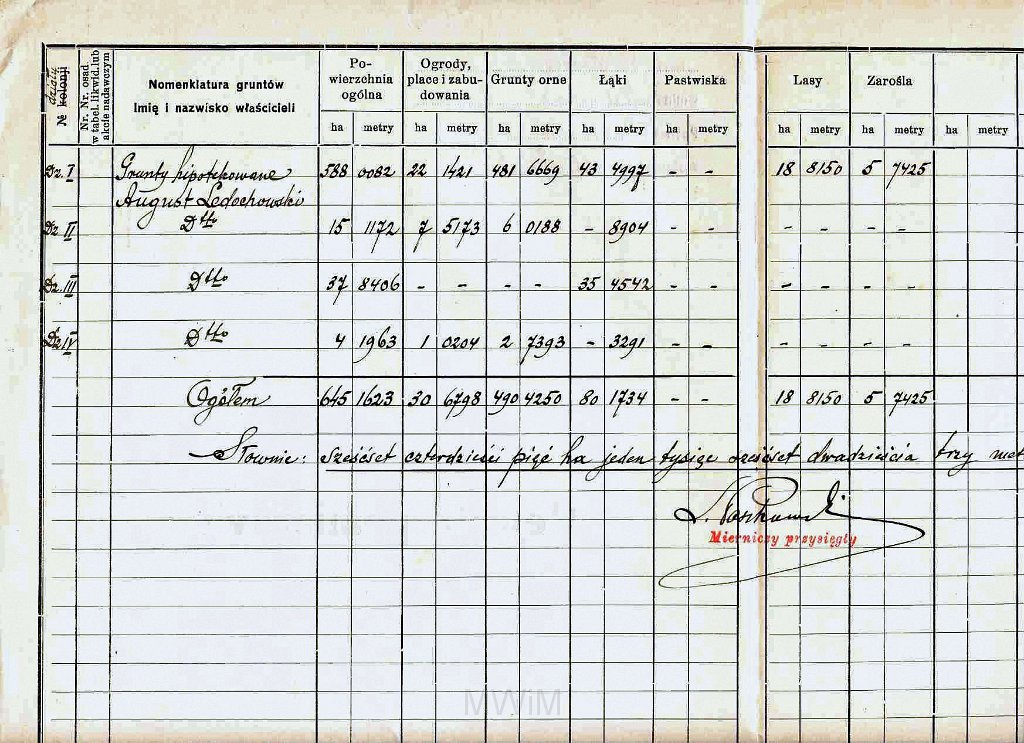 № działu kolonji
Nr. Nr. osad w tabel. likwid. lub akcie nadawczym
Nomenklatura gruntów
Imię i nazwisko właścicieli
Powierzchnia ogólna
Ogrody, place i zabudowania
Grunty orne
Łąki
Pastwiska
Lasy
Zarośla
ha metry ha metry ha metry ha metry ha metry ha metry ha metry ha metry
Dz. I Grunty hipotekowane 588 0082 22 1421 481 6669 43 4997 - - 18 8150 5 7425
August Ledochowski
Dz. II Dtto 15 1172 7 5173 6 0188 - 8904 - - - - - -
Dz. III Dtto 37 8406 - - - - 35 4542 - - - - - -
Dz. IV Dtto 4 1963 1 0204 2 7393 - 3291 - - - - - -
Ogółem 645 1623 30 6798 490 4250 80 1734 - - 18 8150 5 7425
Słownie: sześćset czterdzieści pięć ha jeden tysiąc sześćset dwadzieścia trzy met
Mierniczy przysięgły
MWiM